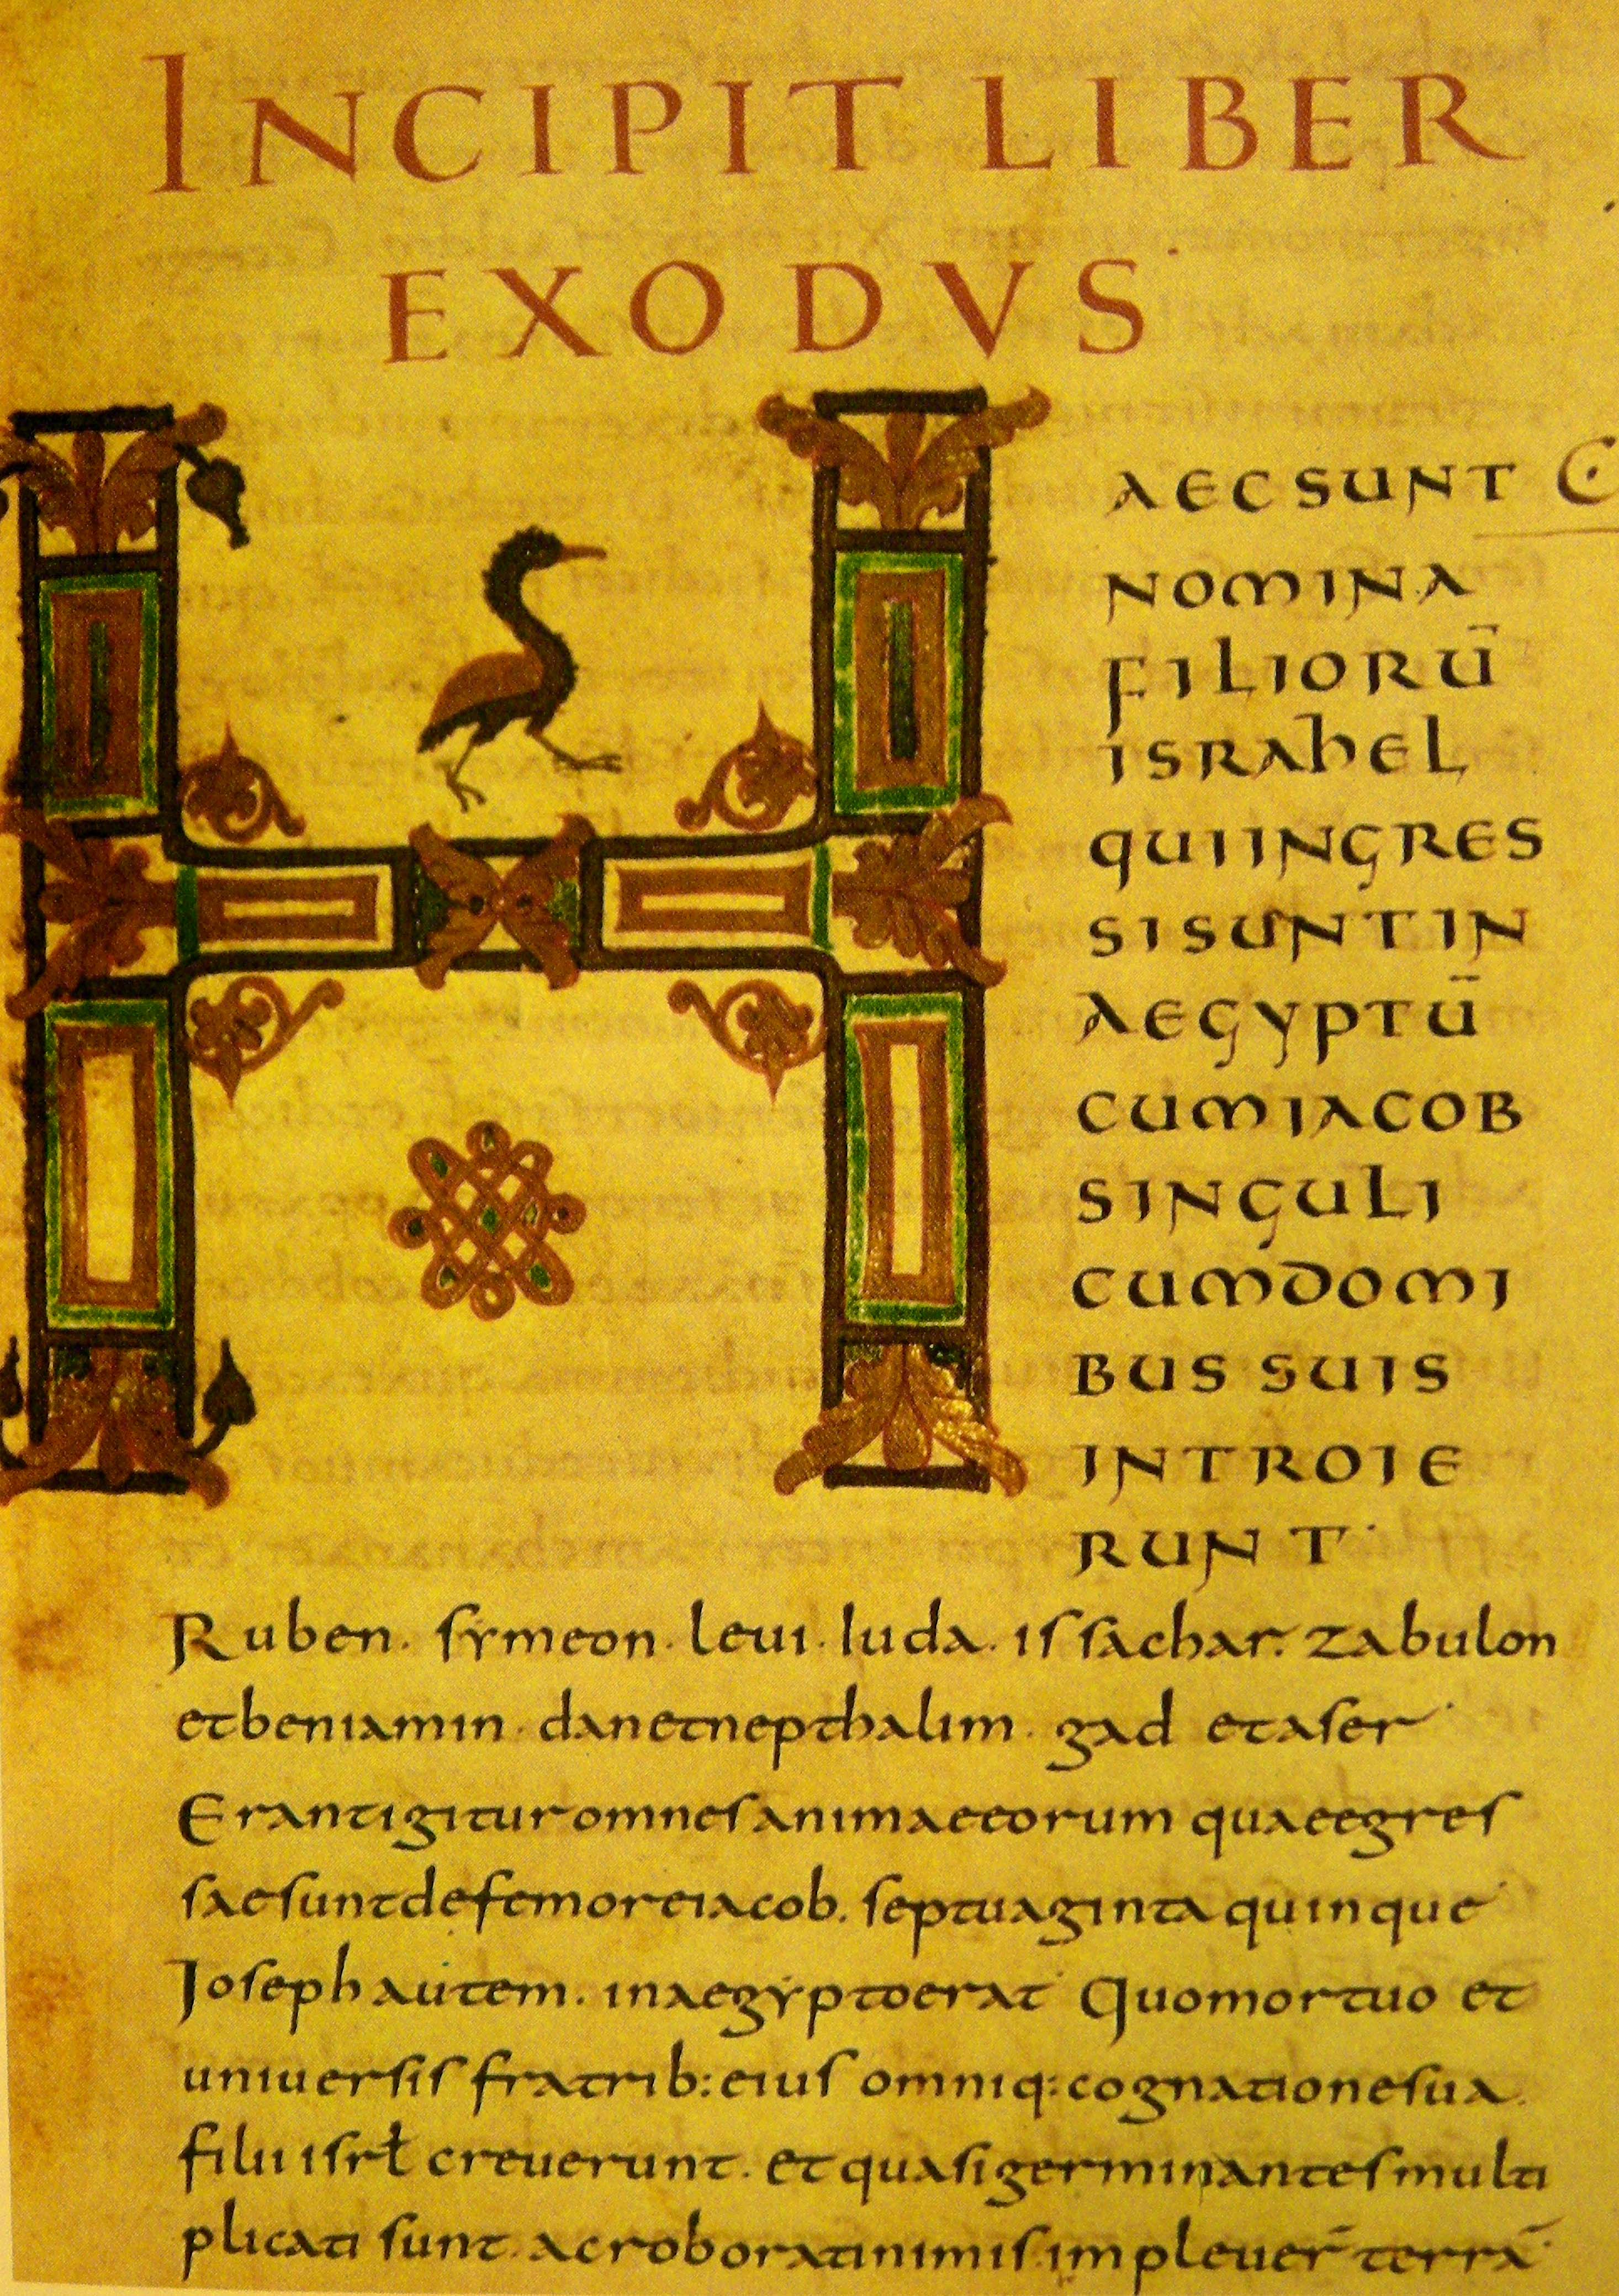 INCIPIT LIBER
EXODVS
HAEC SUNT
NOMINA
FILIORŪ
ISRAHEL
QUI INGRES
SI SUNT IN
AEGYPTŪ
CUM IACOB
SINGULI
CUM DOMI
BUS SUIS
INTROIE
RUNT·
Ruben· symeon· leui· Iuda· issachar· zabulon
et beniamin· dan et nepthalim· gad et aser·
Erant igitur omnes animae eorum quae egres
sae sunt de femore iacob· septuaginta quinque·
Joseph autem· in aegẏpto erat· Quo mortuo et
uniuersis fratrib: eius omniq: cognatione sua·
filii isrł creuerunt· et quasi germinantes multi
plicati sunt· ac roborati nimis· impleuer̄ terrā·